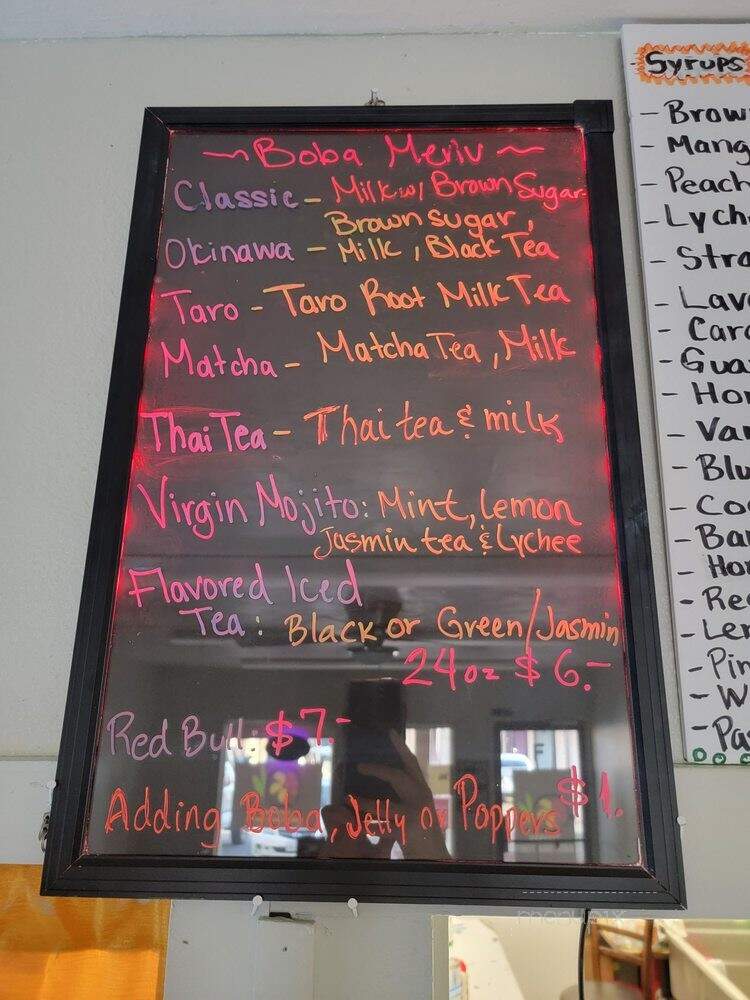 ~ Boba Menu ~
Classic - Milk w/ Brown Sugar
Brown sugar,
Okinawa - Milk, Black Tea
Taro - Taro Root Milk Tea
Matcha - Matcha Tea, Milk
Thai Tea - Thai tea & milk
Virgin Mojito: Mint, lemon
Jasmin tea & Lychee
Flavored Iced
Tea: Black or Green/Jasmin
24oz $6.-
Red Bull: $7.-
Adding Boba, Jelly or Poppers $1.
Syrups
- Brow
- Mang
- Peach
- Lych
- Stra
- Lav
- Cara
- Gua
- Hon
- Van
- Blu
- Co
- Ba
- Ho
- Re
- Le
- Pin
- W
- Pa